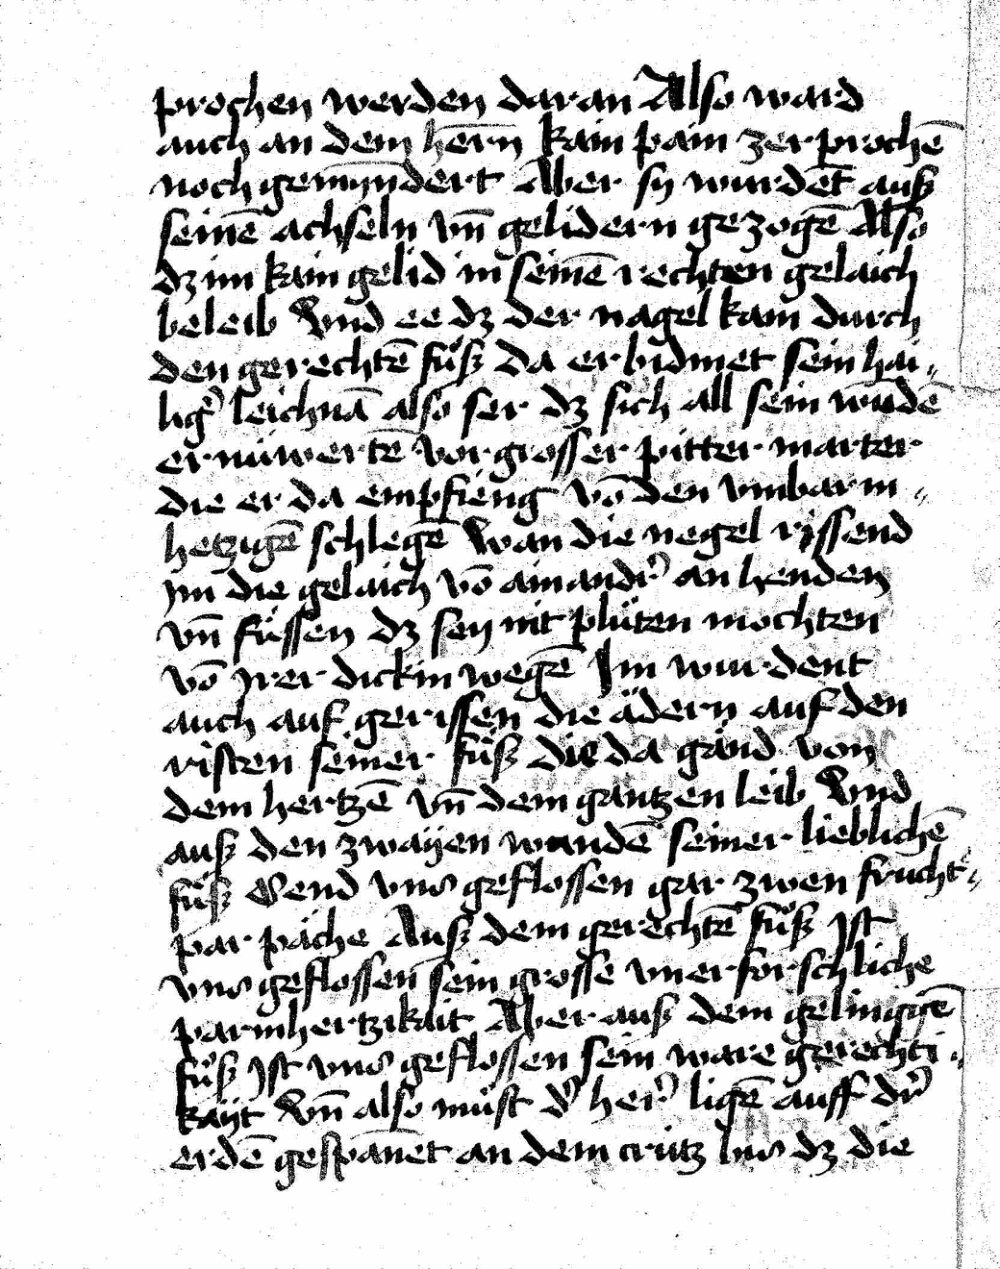 prochen werden daran Also ward
auch an dem hern̄ kain pain zerprochē
noch gemȳndert Aber sy wurdēt auß
seinē achseln vn̄ gelidern gezogē Also
dz im kain gelid in seinē rechten gelaich
beleib Vnd ee dz der nagel kam durch
den gerechtē fuͦß Da erbidmet sein hai„
ligʼ leichnā also ser dz sich all sein wūdē
ernüwertē vor grosser pitter marter
die er da empfieng vō den vmbarm„
hetzigē schlegē Wan die negel rissend
ym die gelaich vō ainandʼ an henden
vn̄ füssen dz sey nit plüten mochten
vō yrer dickin wegē Im wurdent
auch auf gerissen die ädern auf den
risten seiner fuͦß die da gand von
dem hertzē vn̄ dem gantzen leib Vnd
auß den zwayen wundē seiner lieblichē
fuͦß Send vns geflossen gar zwen frucht„
par päche Auß dem gerechtē fuͦß Ist
vns geflossen sein grosse vnerforschliche
parmhertzikait Aber auß dem gelinggē
fuͦß Ist vns geflossen sein ware gerechti„
kayt Vn̄ also muͦst dʼ herʼ ligē auff dʼ
erdē gespānet an dem crütz bis dz die